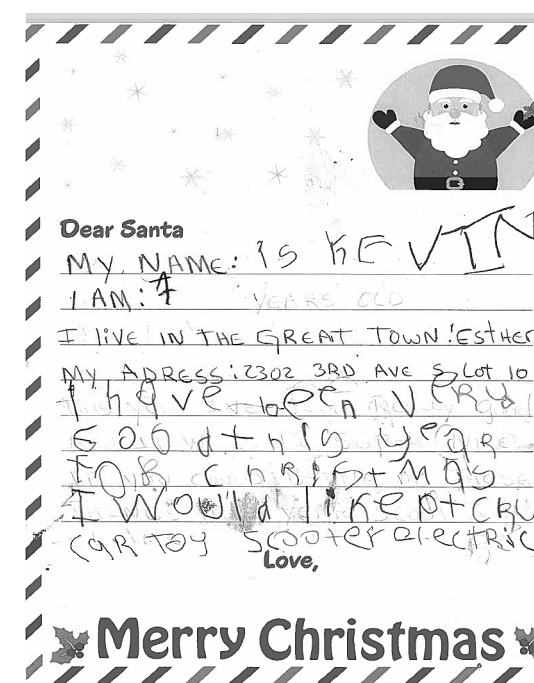 Dear Santa
MY NAME: is KEVIN
I AM: 7 YEARS OLD
I LIVE IN THE GREAT TOWN: ESTHER
MY ADRESS: 2302 3RD AVE S Lot 10
I have been VeRy
GOOd thIS yeaR
FOR chRIStmas
I WOUld like
CaR Toy ScooteR electRIC
Love,
Merry Christmas